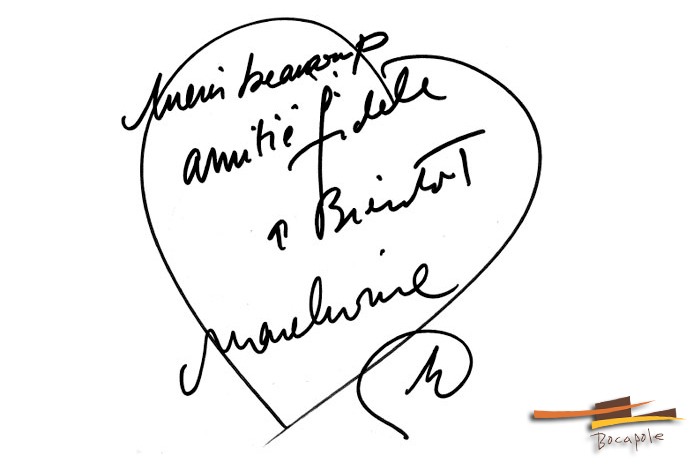 Merci beaucoup
amitié fidèle
à Bientôt
Bocapole